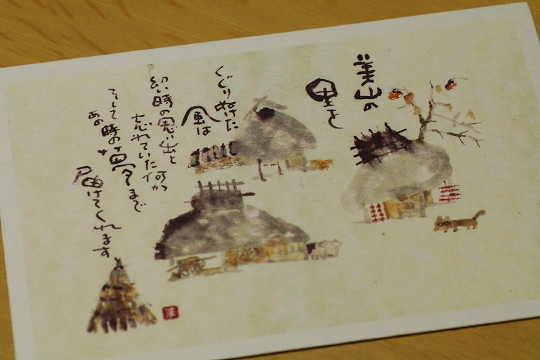 美山の
里を
くぐりぬけた
風は
幼い時の思い出と
忘れていた何か
そして時の夢まで
あの
届けてくれます